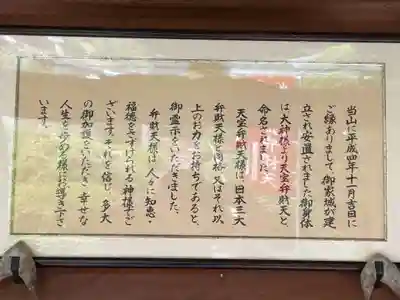 当山に平成四年十一月吉日に
ご縁ありまして御家城が建
立され安置されました御身体
は大神様より天宝弁財天と
命名されました。
天宝弁財天様は日本三大
弁財天様と同格又はそれ以
上のお力をお持ちであると、
御霊示をいただきました。
弁財天様は人々に知恵・
福徳をさずけられる神様でご
ざいます。それを信じ多大
の御加護をいただき幸せな
人生を歩める様にお導き下さ
います。